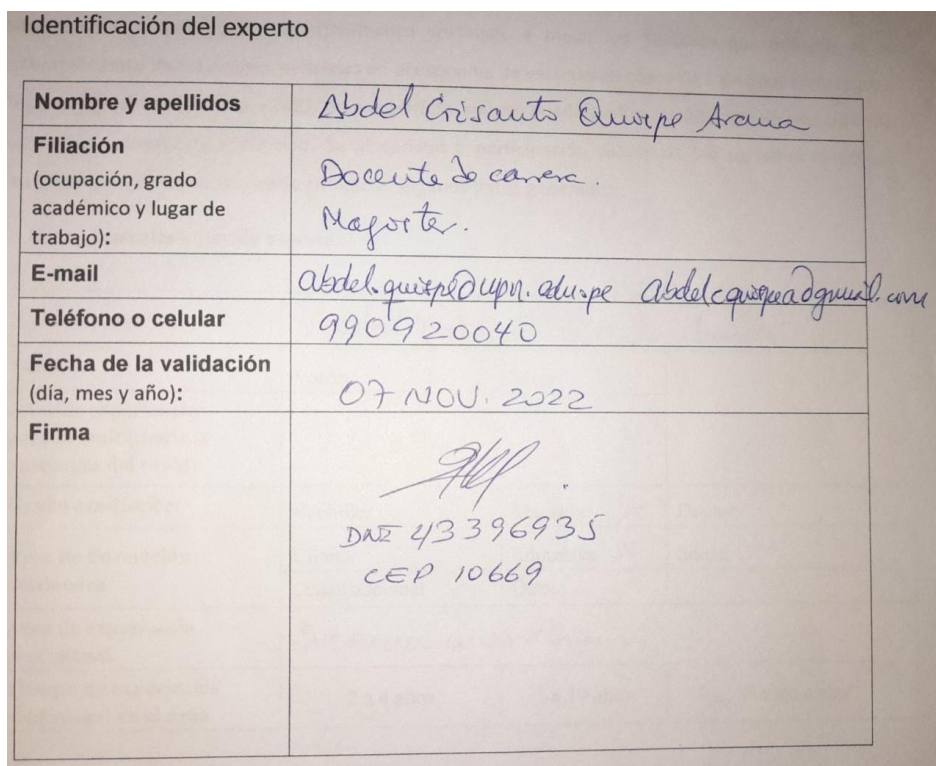 Identificación del experto
Nombre y apellidos Abdel Crisanto Quispe Arana
Filiación
(ocupación, grado
académico y lugar de
trabajo):
Docente de carrera.
Magister.
E-mail abdel.quispe@upn.edu.pe abdelcquispea@gmail.com
Teléfono o celular 990920040
Fecha de la validación
(día, mes y año): 07 NOV. 2022
Firma
DNI 43396935
CEP 10669